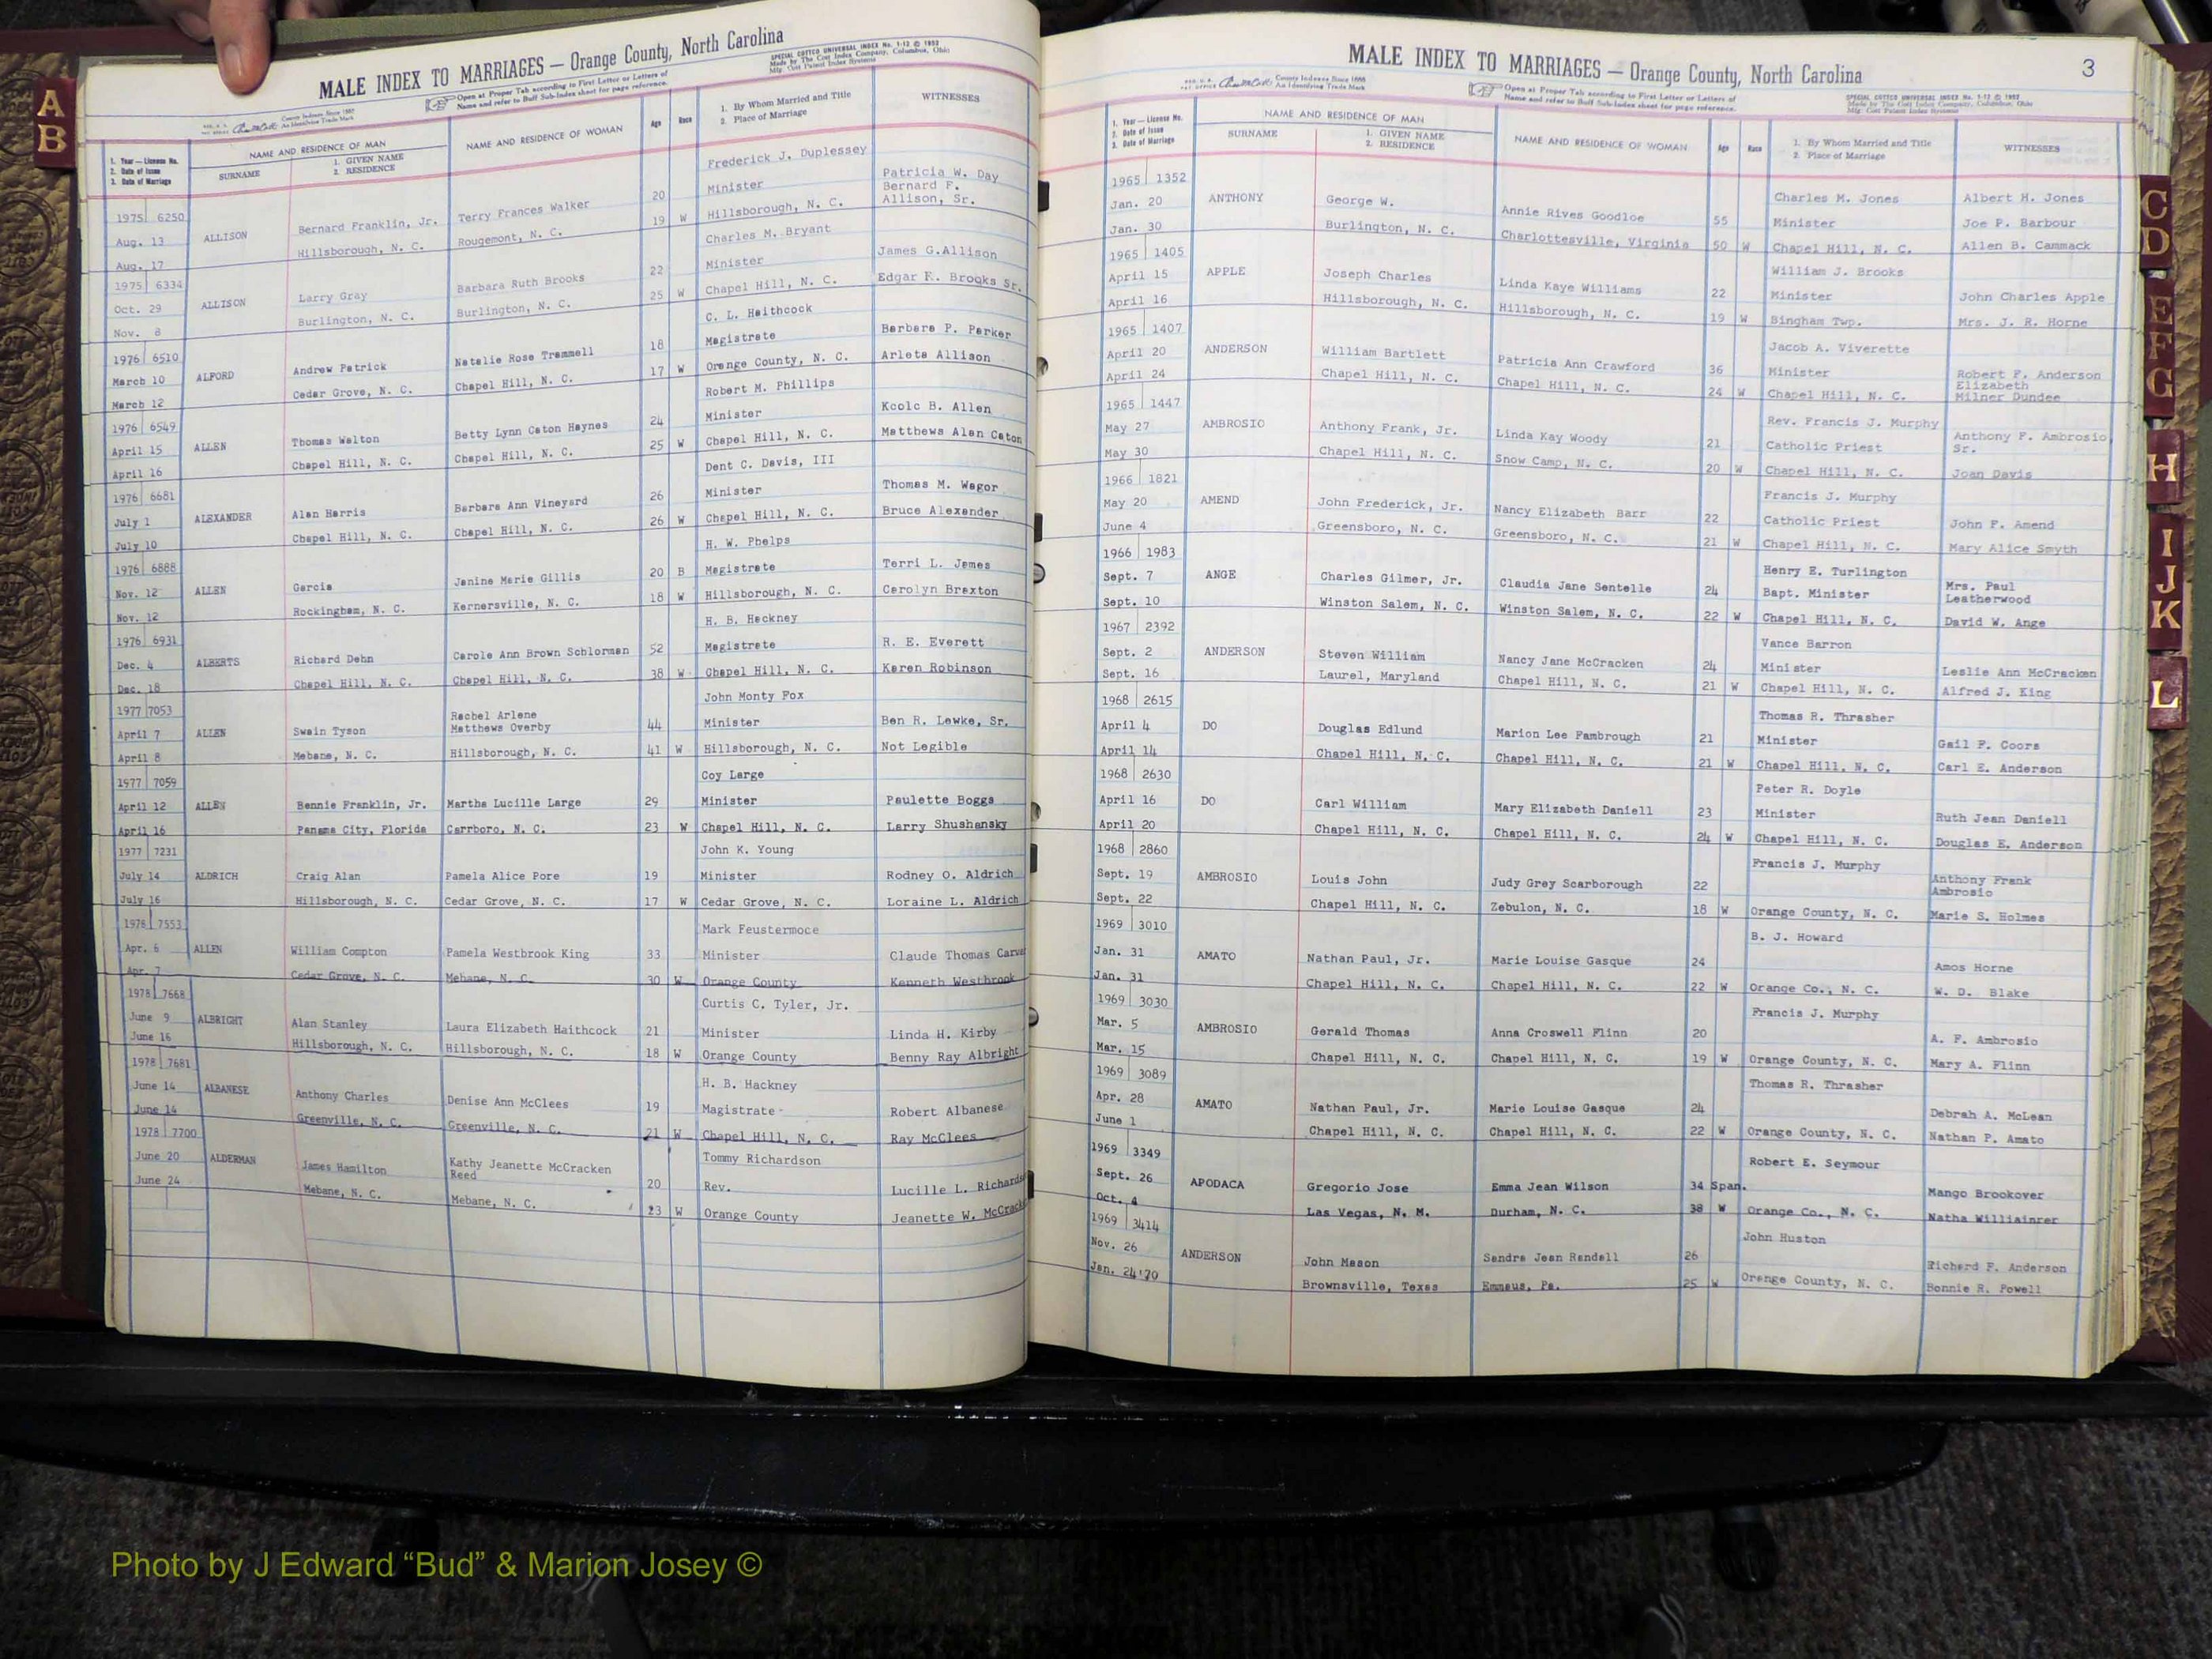 A
B
MALE INDEX TO MARRIAGES — Orange County, North Carolina
SPECIAL COTTCO UNIVERSAL INDEX No. 1-12 © 1952
Made by The Cott Index Company, Columbus, Ohio
Mfg. Cott Patent Index Systems
County Indexes Since 1888
An Identifying Trade Mark
Open at Proper Tab according to First Letter or Letters of
Name and refer to Buff Sub-Index sheet for page reference.
1. Year — License No.
2. Date of Issue
3. Date of Marriage
NAME AND RESIDENCE OF MAN
SURNAME
1. GIVEN NAME
2. RESIDENCE
NAME AND RESIDENCE OF WOMAN
Age
Race
1. By Whom Married and Title
2. Place of Marriage
WITNESSES
1975 6250 Aug. 13 Aug. 17 ALLISON Bernard Franklin, Jr. Hillsborough, N. C. Terry Frances Walker Rougemont, N. C. 20 19 W Frederick J. Duplessey Minister Hillsborough, N. C. Patricia W. Day Bernard F. Allison, Sr.
1975 6334 Oct. 29 Nov. 8 ALLISON Larry Gray Burlington, N. C. Barbara Ruth Brooks Burlington, N. C. 22 25 W Charles M. Bryant Minister Chapel Hill, N. C. James G.Allison Edgar F. Brooks Sr.
1976 6510 March 10 March 12 ALFORD Andrew Patrick Cedar Grove, N. C. Natalie Rose Trammell Chapel Hill, N. C. 18 17 W C. L. Haithcock Magistrate Orange County, N. C. Barbara P. Parker Arleta Allison
1976 6549 April 15 April 16 ALLEN Thomas Walton Chapel Hill, N. C. Betty Lynn Caton Haynes Chapel Hill, N. C. 24 25 W Robert M. Phillips Minister Chapel Hill, N. C. Kcolc B. Allen Matthews Alan Caton
1976 6681 July 1 July 10 ALEXANDER Alan Harris Chapel Hill, N. C. Barbara Ann Vineyard Chapel Hill, N. C. 26 26 W Dent C. Davis, III Minister Chapel Hill, N. C. Thomas M. Wagor Bruce Alexander
1976 6888 Nov. 12 Nov. 12 ALLEN Garcia Rockingham, N. C. Janine Marie Gillis Kernersville, N. C. 20 B 18 W H. W. Phelps Magistrate Hillsborough, N. C. Terri L. James Carolyn Braxton
1976 6931 Dec. 4 Dec. 18 ALBERTS Richard Dehn Chapel Hill, N. C. Carole Ann Brown Schlorman Chapel Hill, N. C. 52 38 W H. B. Hackney Magistrate Chapel Hill, N. C. R. E. Everett Karen Robinson
1977 7053 April 7 April 8 ALLEN Swain Tyson Mebane, N. C. Rachel Arlene Matthews Overby Hillsborough, N. C. 44 41 W John Monty Fox Minister Hillsborough, N. C. Ben R. Lewke, Sr. Not Legible
1977 7059 April 12 April 16 ALLEN Bennie Franklin, Jr. Panama City, Florida Martha Lucille Large Carrboro, N. C. 29 23 W Coy Large Minister Chapel Hill, N. C. Paulette Boggs Larry Shushansky
1977 7231 July 14 July 16 ALDRICH Craig Alan Hillsborough, N. C. Pamela Alice Pore Cedar Grove, N. C. 19 17 W John K. Young Minister Cedar Grove, N. C. Rodney O. Aldrich Loraine L. Aldrich
1978 7553 Apr. 6 Apr. 7 ALLEN William Compton Cedar Grove, N. C. Pamela Westbrook King Mebane, N. C. 33 30 W Mark Feustermoce Minister Orange County Claude Thomas Kenneth Westbrook
1978 7668 June 9 June 16 ALBRIGHT Alan Stanley Hillsborough, N. C. Laura Elizabeth Haithcock Hillsborough, N. C. 21 18 W Curtis C. Tyler, Jr. Minister Orange County Linda H. Kirby Benny Ray Albright
1978 7681 June 14 June 14 ALBANESE Anthony Charles Greenville, N. C. Denise Ann McClees Greenville, N. C. 19 21 W H. B. Hackney Magistrate Chapel Hill, N. C. Robert Albanese Ray McClees
1978 7700 June 20 June 24 ALDERMAN James Hamilton Mebane, N. C. Kathy Jeanette McCracken Reed Mebane, N. C. 20 23 W Tommy Richardson Rev. Orange County Lucille L. Jeanette W.
MALE INDEX TO MARRIAGES — Orange County, North Carolina
3
County Indexes Since 1888
An Identifying Trade Mark
Open at Proper Tab according to First Letter or Letters of
Name and refer to Buff Sub-Index sheet for page reference.
SPECIAL COTTCO UNIVERSAL INDEX No. 1-12 © 1952
Made by The Cott Index Company, Columbus, Ohio
Mfg. Cott Patent Index Systems
1. Year — License No.
2. Date of Issue
3. Date of Marriage
NAME AND RESIDENCE OF MAN
SURNAME
1. GIVEN NAME
2. RESIDENCE
NAME AND RESIDENCE OF WOMAN
Age
Race
1. By Whom Married and Title
2. Place of Marriage
WITNESSES
1965 1352 Jan. 20 Jan. 30 ANTHONY George W. Burlington, N. C. Annie Rives Goodloe Charlottesville, Virginia 55 50 W Charles M. Jones Minister Chapel Hill, N. C. Albert H. Jones Joe P. Barbour Allen B. Cammack
1965 1405 April 15 April 16 APPLE Joseph Charles Hillsborough, N. C. Linda Kaye Williams Hillsborough, N. C. 22 19 W William J. Brooks Minister Bingham Twp. John Charles Apple Mrs. J. R. Horne
1965 1407 April 20 April 24 ANDERSON William Bartlett Chapel Hill, N. C. Patricia Ann Crawford Chapel Hill, N. C. 36 24 W Jacob A. Viverette Minister Chapel Hill, N. C. Robert F. Anderson Elizabeth Milner Dundee
1965 1447 May 27 May 30 AMBROSIO Anthony Frank, Jr. Chapel Hill, N. C. Linda Kay Woody Snow Camp, N. C. 21 20 W Rev. Francis J. Murphy Catholic Priest Chapel Hill, N. C. Anthony F. Ambrosio Sr. Joan Davis
1966 1821 May 20 June 4 AMEND John Frederick, Jr. Greensboro, N. C. Nancy Elizabeth Barr Greensboro, N. C. 22 21 W Francis J. Murphy Catholic Priest Chapel Hill, N. C. John F. Amend Mary Alice Smyth
1966 1983 Sept. 7 Sept. 10 ANGE Charles Gilmer, Jr. Winston Salem, N. C. Claudia Jane Sentelle Winston Salem, N. C. 24 22 W Henry E. Turlington Bapt. Minister Chapel Hill, N. C. Mrs. Paul Leatherwood David W. Ange
1967 2392 Sept. 2 Sept. 16 ANDERSON Steven William Laurel, Maryland Nancy Jane McCracken Chapel Hill, N. C. 24 21 W Vance Barron Minister Chapel Hill, N. C. Leslie Ann McCracken Alfred J. King
1968 2615 April 4 April 14 DO Douglas Edlund Chapel Hill, N. C. Marion Lee Fambrough Chapel Hill, N. C. 21 21 W Thomas R. Thrasher Minister Chapel Hill, N. C. Gail F. Coors Carl E. Anderson
1968 2630 April 16 April 20 DO Carl William Chapel Hill, N. C. Mary Elizabeth Daniell Chapel Hill, N. C. 23 24 W Peter R. Doyle Minister Chapel Hill, N. C. Ruth Jean Daniell Douglas E. Anderson
1968 2860 Sept. 19 Sept. 22 AMBROSIO Louis John Chapel Hill, N. C. Judy Grey Scarborough Zebulon, N. C. 22 18 W Francis J. Murphy Orange County, N. C. Anthony Frank Ambrosio Marie S. Holmes
1969 3010 Jan. 31 Jan. 31 AMATO Nathan Paul, Jr. Chapel Hill, N. C. Marie Louise Gasque Chapel Hill, N. C. 24 22 W B. J. Howard Orange Co., N. C. Amos Horne W. D. Blake
1969 3030 Mar. 5 Mar. 15 AMBROSIO Gerald Thomas Chapel Hill, N. C. Anna Croswell Flinn Chapel Hill, N. C. 20 19 W Francis J. Murphy Orange County, N. C. A. F. Ambrosio Mary A. Flinn
1969 3089 Apr. 28 June 1 AMATO Nathan Paul, Jr. Chapel Hill, N. C. Marie Louise Gasque Chapel Hill, N. C. 24 22 W Thomas R. Thrasher Orange County, N. C. Debrah A. McLean Nathan P. Amato
1969 3349 Sept. 26 Oct. 4 APODACA Gregorio Jose Las Vegas, N. M. Emma Jean Wilson Durham, N. C. 34 Span. 38 W Robert E. Seymour Orange Co., N. C. Mango Brookover Natha Williainrer
1969 3414 Nov. 26 Jan. 24'70 ANDERSON John Mason Brownsville, Texas Sandra Jean Randall Emmaus, Pa. 26 25 W John Huston Orange County, N. C. Richard F. Anderson Bonnie R. Powell
C
D
E
F
G
H
I
J
K
L
Photo by J Edward “Bud” & Marion Josey ©